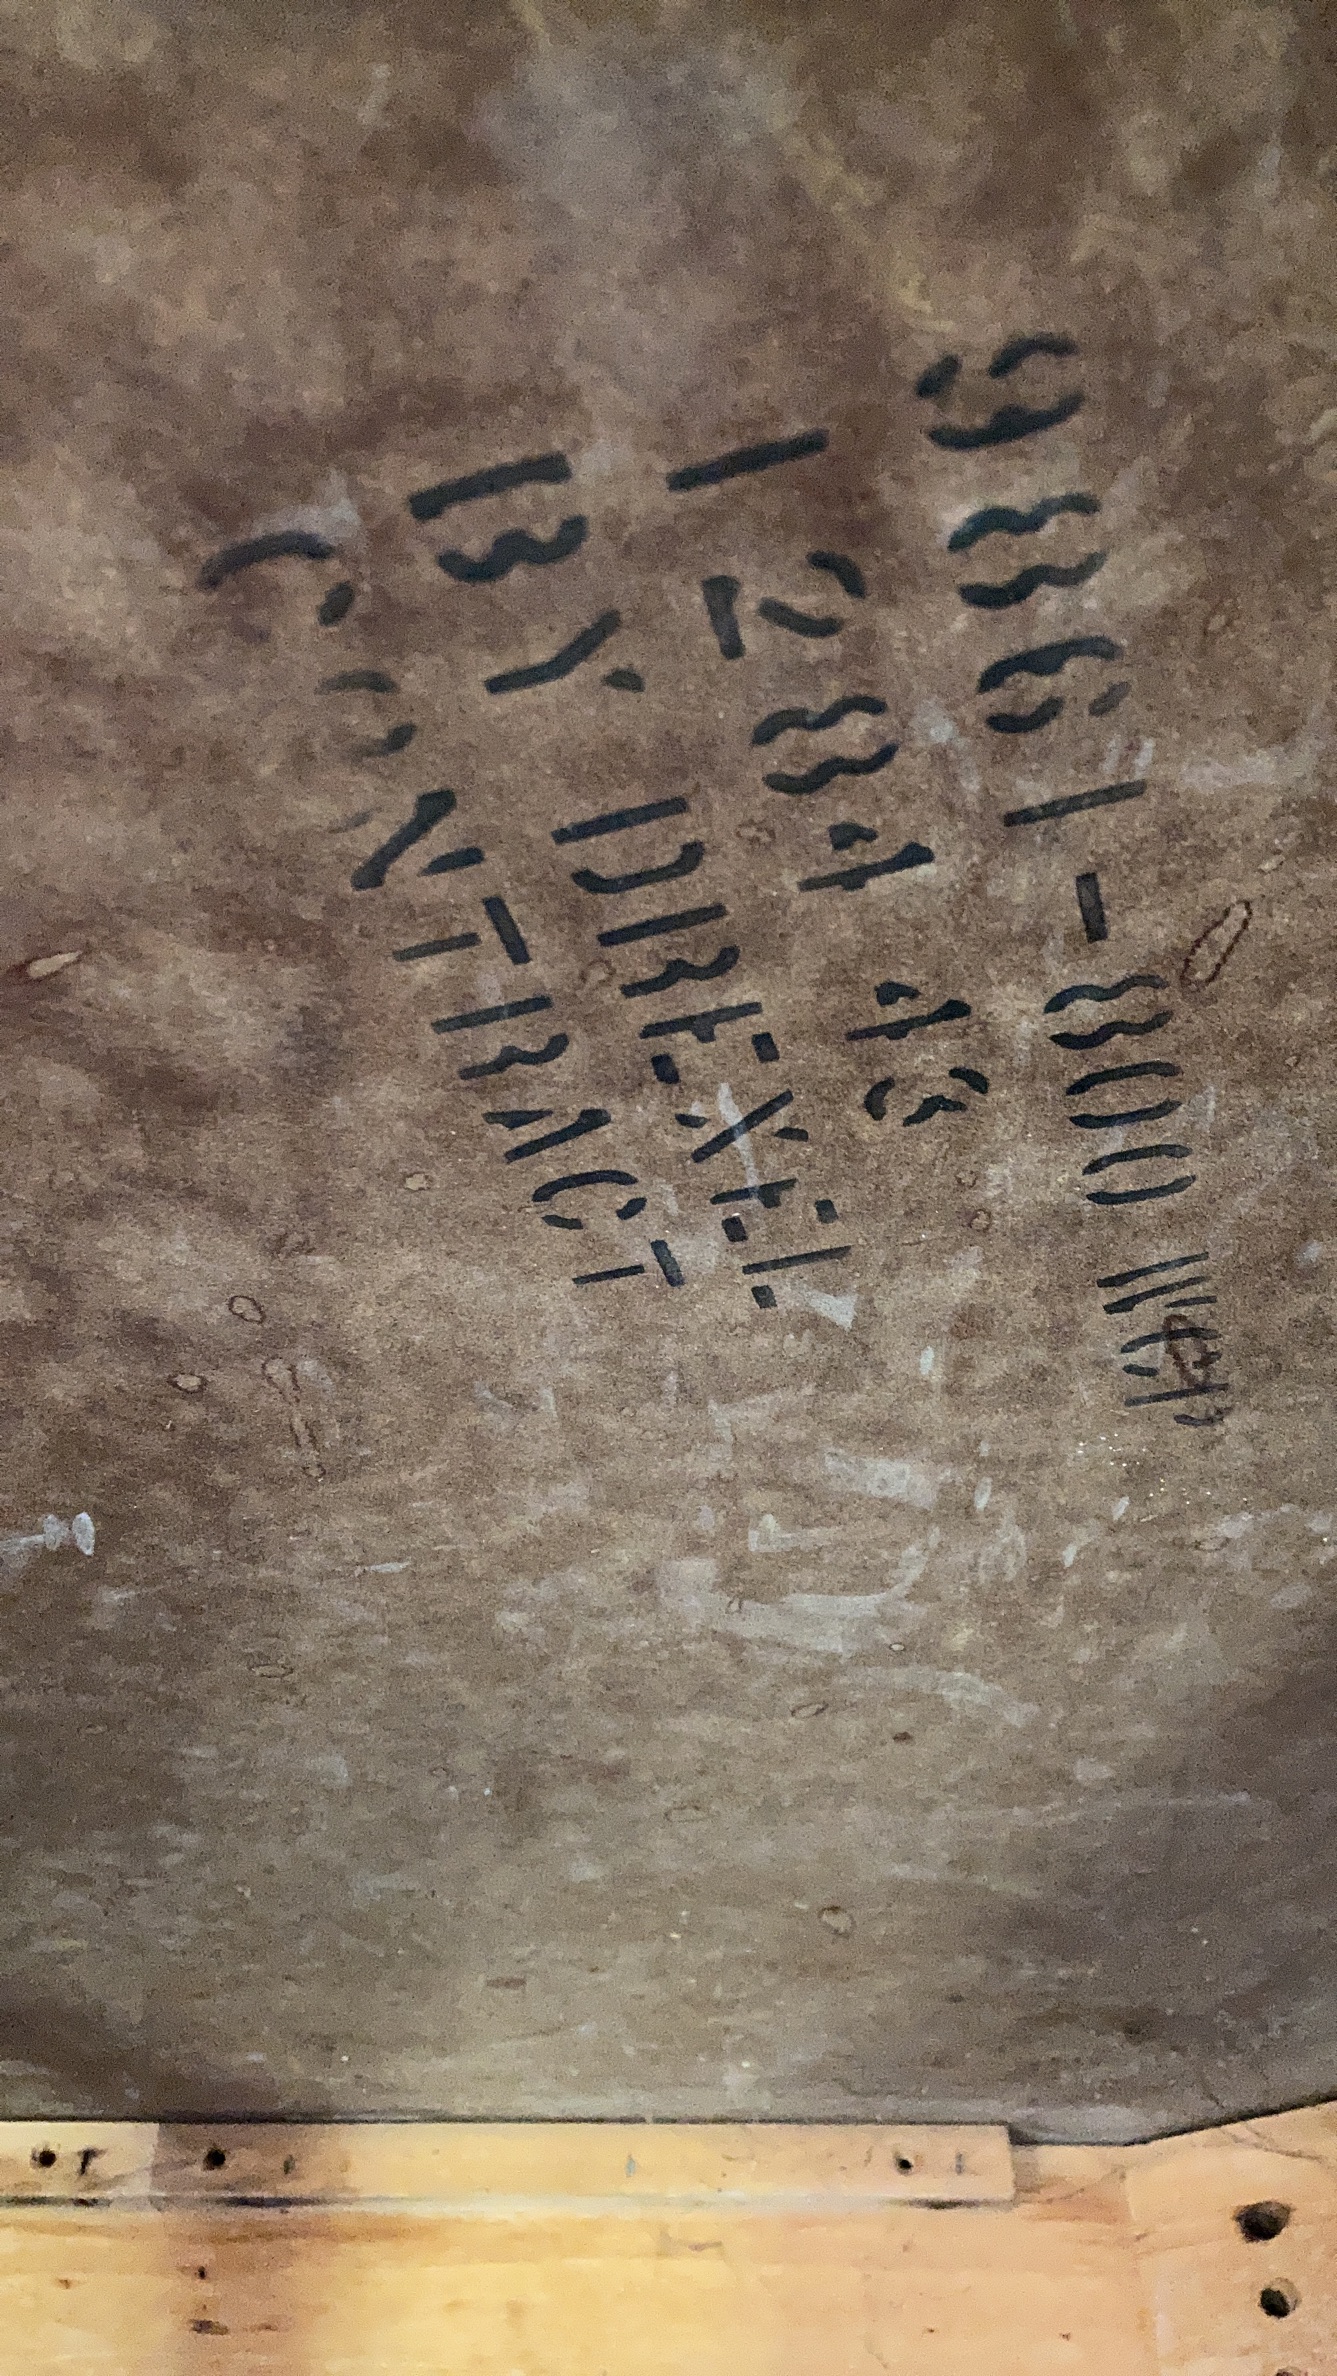 9861-800
1284
BY DREXEL
CONTRACT